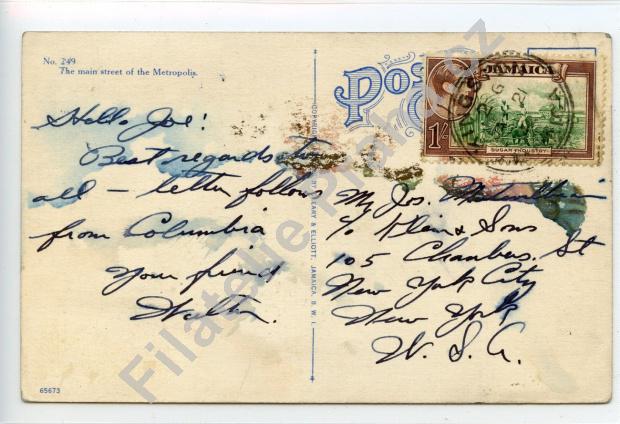 No. 249
The main street of the Metropolis.
Hello Joe!
Best regards to
all - letter follows
from Columbia
Your friend
Walter.
POS
JAMAICA
1/-
SUGAR INDUSTRY
BY CLEARY & ELLIOTT, JAMAICA, B. W. I.
Mr Jos.
c/o Klein & Sons
105 Chambers St
New York City
New York
U. S. A.
65673
Filatelie Praha.cz